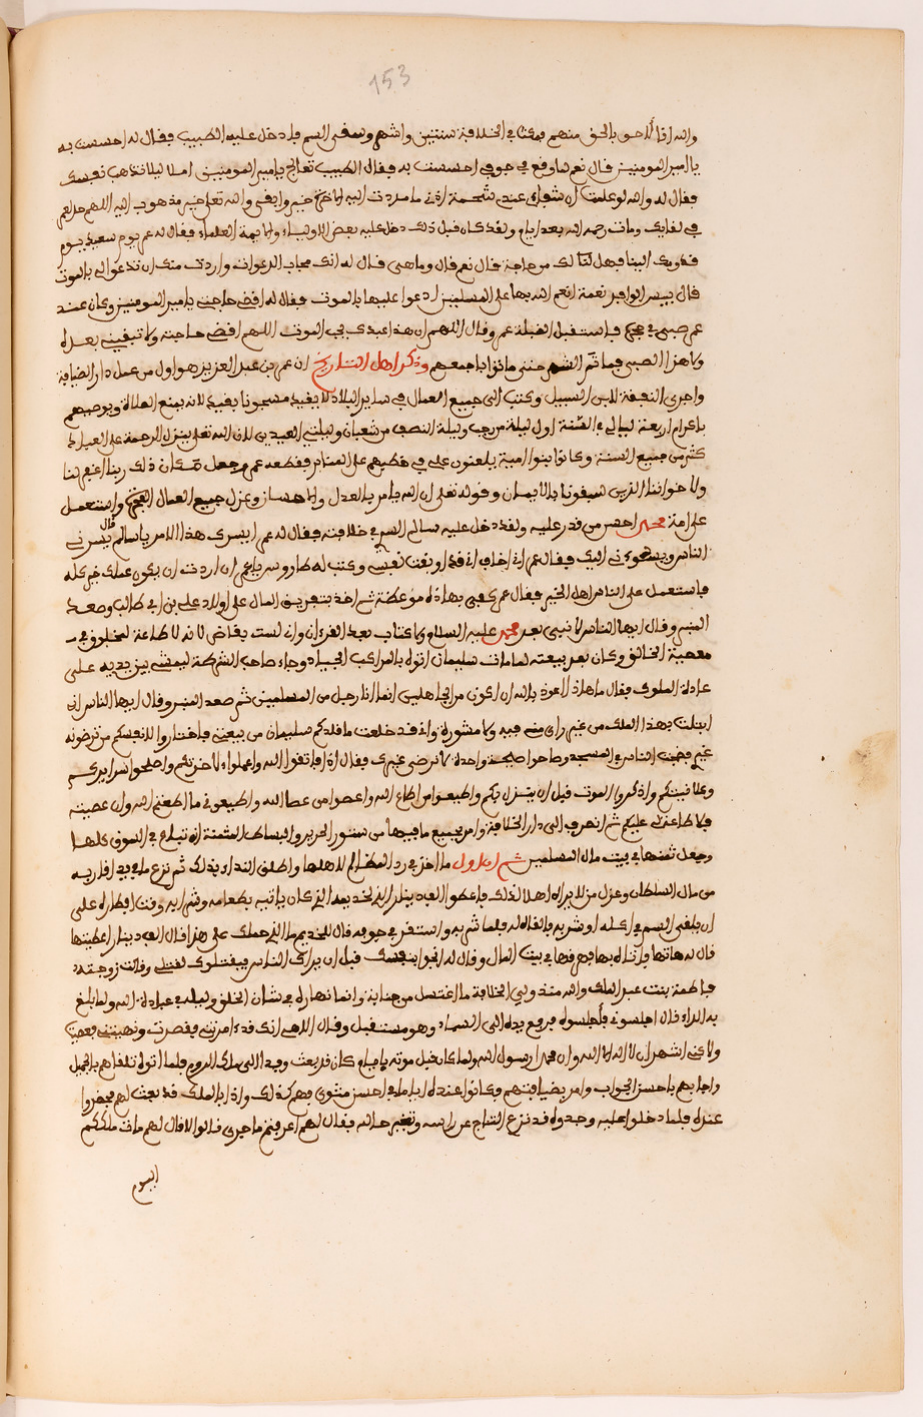 153
والله اذا لاحق بالحق منهم فمكث في الخلافة سنتين واشهر وسقي السم فلما دخل عليه الطبيب فقال له احسست به
يا امير المومنين قال نعم لما وقع في جوفي احسست به فقال الطبيب تعالج يا امير المومنين املا ليلا تذهب نفسك
فقال له والله لو علمت ان شفاى عند شحمة اذنى ما مددت اليه انا خير وابقى والله تعلى خير مذهوب اليه اللهم خر لعمر
في لقايك ومات رحمه الله بعد ايام ولقد كان قبل ذلك دخل عليه بعض الاوليا وايمة العلماء فقال له عمر يوم سعيد يوم
قدومك الينا فهل لنا لك من حاجة قال نعم قال وما هى قال له انك مجاب الدعوات واردت منك ان تدعوا لى بالموت
قال بيس الوافد نعمة انعم الله بها على المسلمين ادعوا عليها بالموت فقال له اقض حاجتى يا امير المومنين وكان عند
عمر صبي في حجره فاستقبل القبلة عمر وقال اللهم ان هذا عبدى يحب الموت اللهم اقض حاجته ولا تبقينى بعده
ولا هذا الصبى فما تم الشهر حتى ماتوا باجمعهم وذكر اهل التاريخ ان عمر بن عبد العزيز هو اول من عمل دار الضيافة
واجرى النفقة لابن السبيل وكتب الى جميع العمال في ساير البلاد لا يقيد مسجونا بقيد لانه يمنع الصلاة ويوصيهم
باكرام اربعة ليالى في السنة اول ليلة من رجب وليلة النصف من شعبان وليلتى العيدين لان الله تعلى ينزل الرحمة على العباد
كثر من جميع السنة وكانوا بنوا امية يلعنون على في خطبهم على المنابر فقطعه عمر وجعل مكان ذلك ربنا اغفر لنا
ولاخواننا الذين سبقونا بالايمان وقوله تعلى ان الله يامر بالعدل والاحسان وعزل جميع العمال واستعمل
على امة محمد احسن من قدر عليه ولقد دخل عليه سالم السر في خلافته فقال له عمر ايسرى هذا الامر يا سالم قال يسرنى
الناس ويسوءنى اليك فقال عمر انى اخاف انى قد اوبقت نفسى وكتب له طاروس يا عمر ان اردت ان يكون عملك خير كله
فاستعمل على الناس اهل الخير فقال عمر كفى بهاذه موعظة ثم اخذ بتفريق المال على اولاد على بن ابى طالب وصعد
المنبر وقال ايها الناس لا نبى بعد محمد عليه السلام ولا كتاب بعد القرءان وانى لست بقاض لانه لا طاعة لمخلوق في
معصية الخالق وكان بعد بيعته لما مات سليمان اتوه بالمراكب الجياد وجاء صاحب الشرطة ليمشى بين يديه على
عادة الملوك فقال ما هاذا اعوذ بالله ان اكون من الجاهلين انما انا رجل من المسلمين ثم صعد المنبر وقال ايها الناس انى
ابتليت بهذا الملك من غير راى منى فيه ولا مشورة وانى قد خلعت ما قلدكم سليمان من بيعتى فاختاروا لانفسكم من ترضونه
غيرى فضجت الناس في المسجد وصاحوا صيحة واحدة لا نرضى غيرك فقال اذا فاتقوا الله واعملوا لاخرتكم واصلحوا سرايركم
وعلانيتكم واذكروا الموت قبل ان ينزل بكم واطيعوا من اطاع الله واعصوا من عصا الله واطيعونى ما اطعتم الله وان عصيته
فلا طاعة لى عليكم ثم انصرف الى دار الخلافة وامر بجميع ما فيها من ستور الحرير والبساط المثمنة ان تباع في السوق كلها
وجعل ثمنها في بيت مال المسلمين ثم ان اول ما اخذ في رد المظالم لاهلها واطلق النداء بذلك ثم نزع ما في يد اقاربه
من مال السلطان وعزل من لا يراه اهلا لذلك فاعطوا الف دينار الى خديمه الذى كان ياتيه بطعامه وشرابه وقت افطاره على
ان يلقى السم في اكله او شربه فالقاه له فلما شربه واستقر في جوفه قال للخديم ما الذى حملك على هذا قال الف دينار اعطيتها
قال له هاتها فاتاه بها فصرفها في بيت المال وقال له اذهب بنفسك قبل ان يراك الناس فيقتلوك لقتلى وقالت زوجته
فاطمة بنت عبد الملك والله منذ ولي الخلافة ما اغتسل من جنابة وانما نهاره في شان الخلق وليله في عبادة الله ولما بلغ
به الداء قال اجلسونى فاجلسوه فرفع يده الى السماء وهو مستقبل وقال اللهم انك قد امرتنى فقصرت ونهيتنى فعصيت
ولاكن اشهد ان لا اله الا الله وان محمد رسول الله ولما كان قبل موته بايام كان قد بعث وفدا الى ملك الروم فلما اتوه تلقاهم بالجميل
واجابهم باحسن الجواب وامر بضيافتهم وكانوا عنده اياما في احسن مثوى فهم كذلك واذا بالملك قد بعث لهم فحضروا
عنده فلما دخلوا عليه وجدوه قد نزع التاج عن راسه وتغير حاله فقال لهم اعرفتم ما جرى قالوا لا قال لهم مات ملككم
اليوم